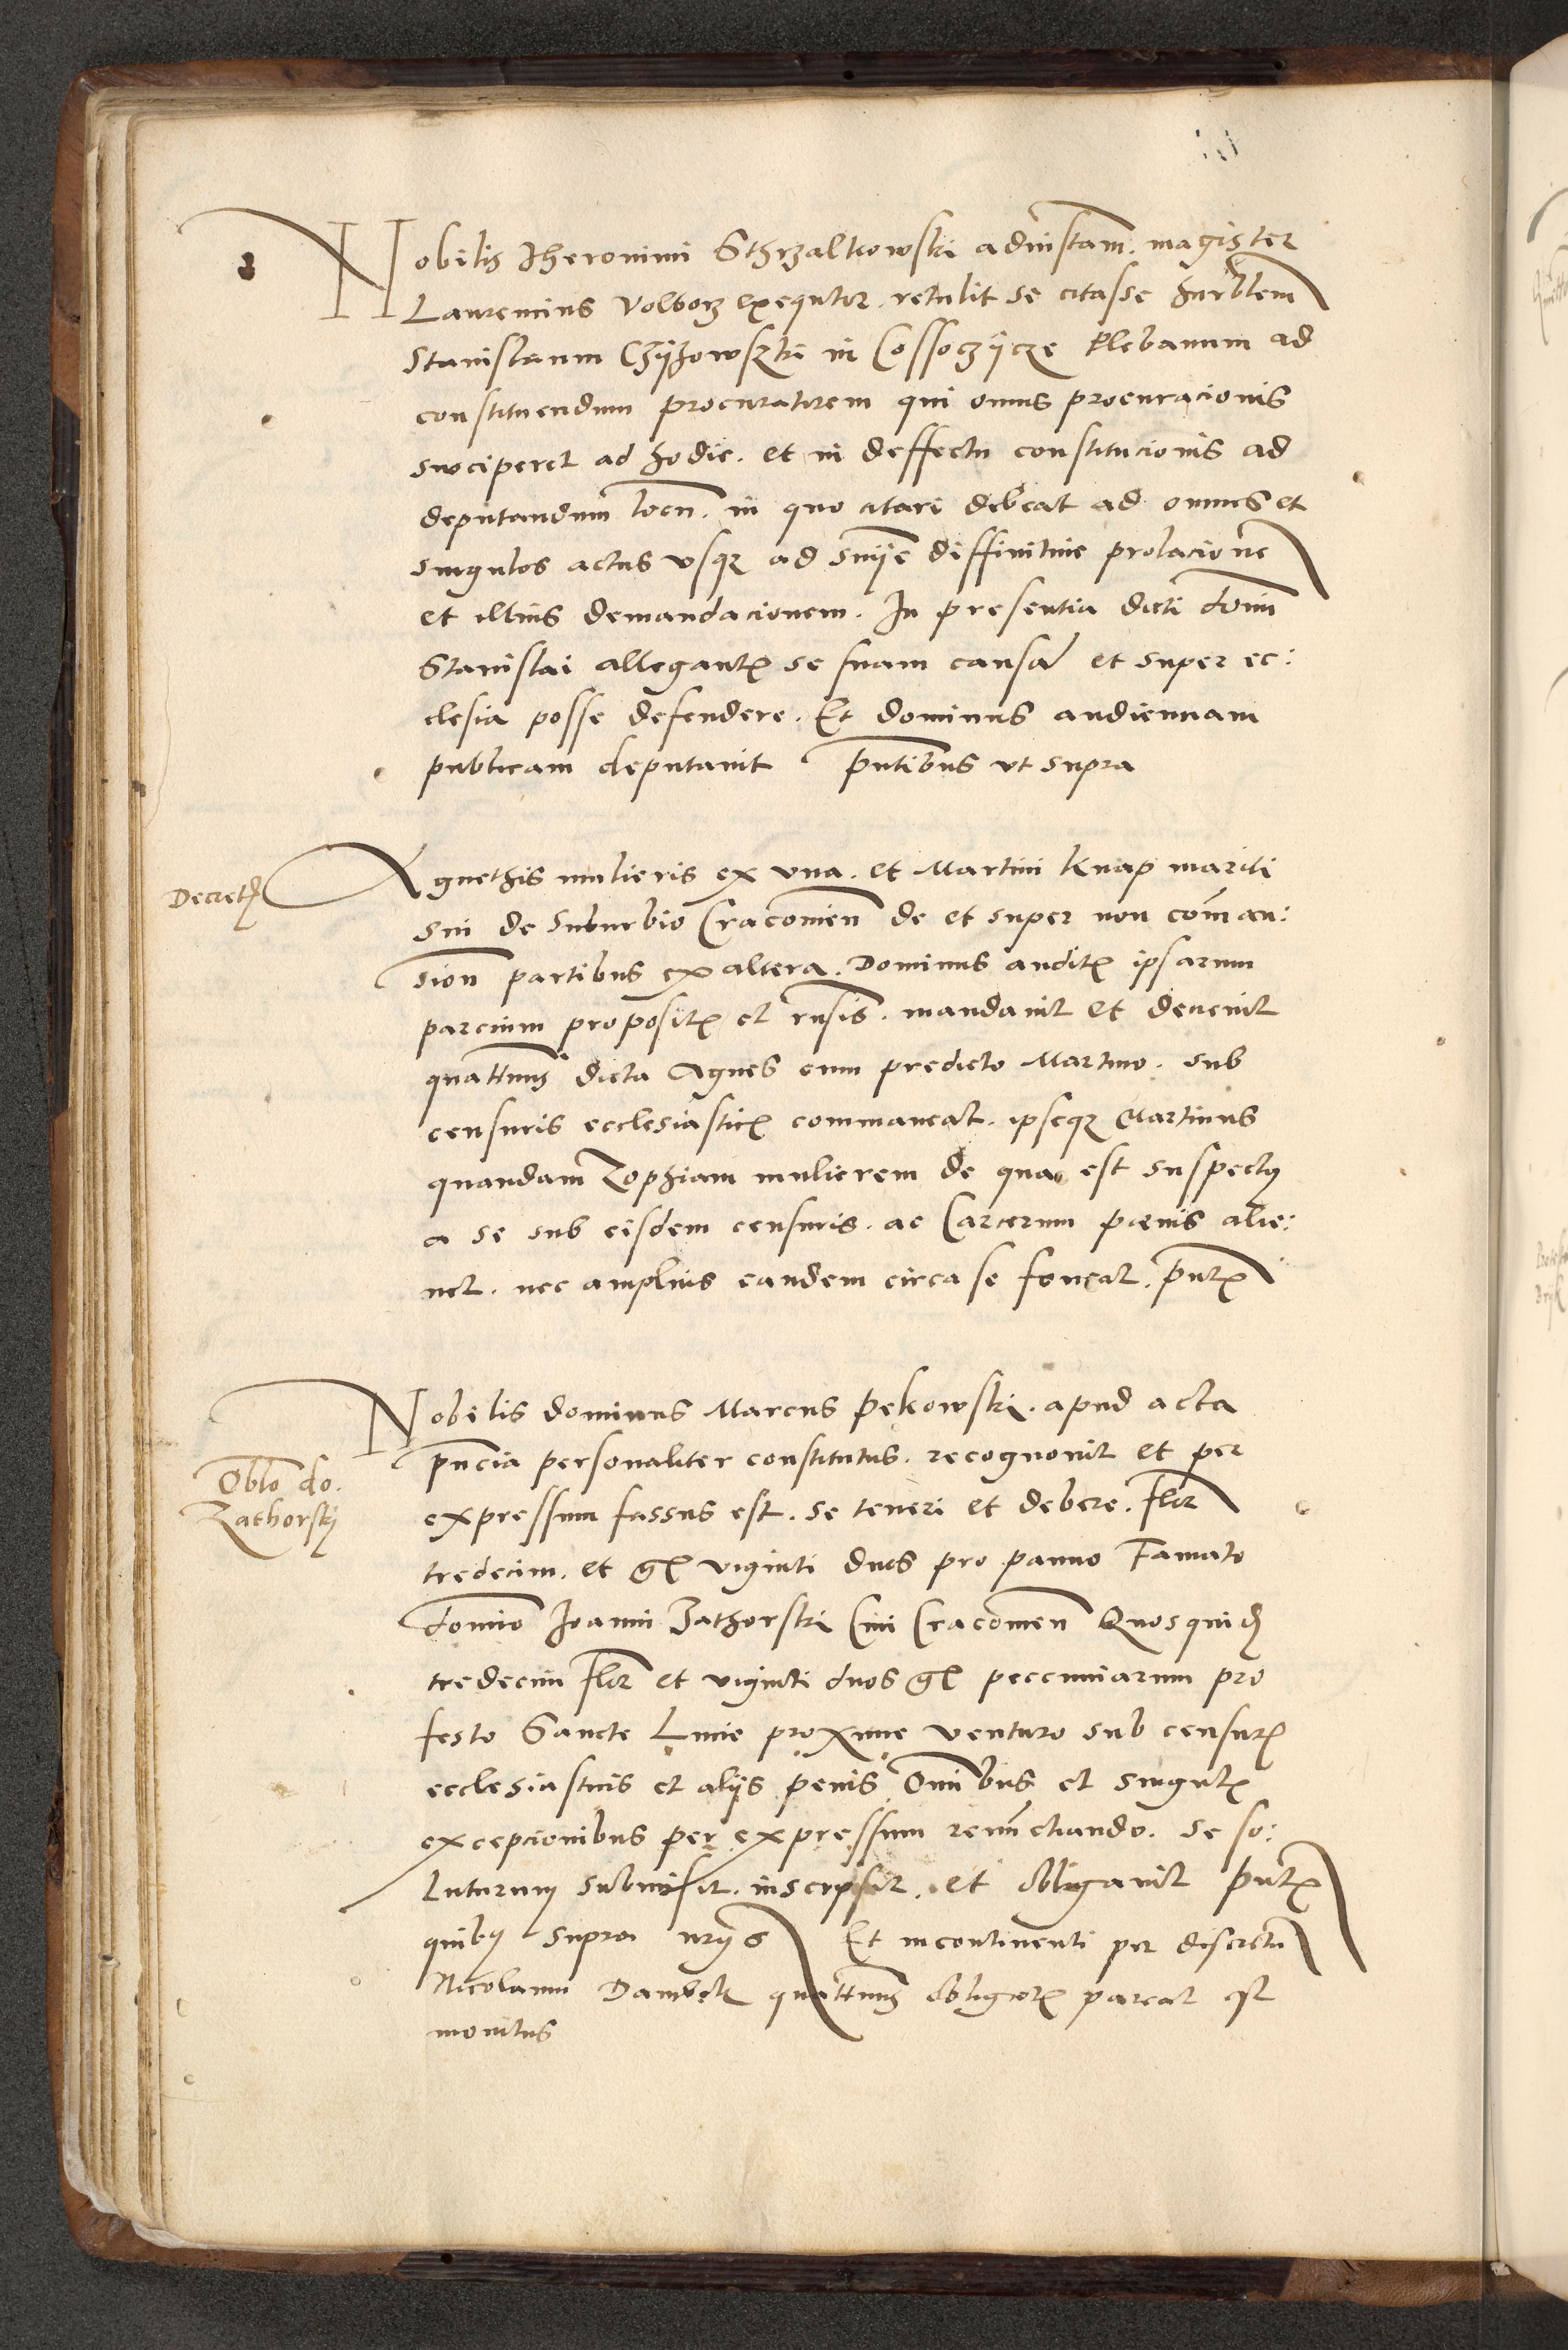 Nobilis Iheronimi Sthrzalkowski ad instam. magister
Laurencius Volborz exequtor. retulit se citasse honrblem
Stanislaum Czÿzowszki in Cossoczÿcze Plebanum ad
constituendum procuratorem qui onus procuracionis
susciperet ad hodie. et in deffectu constitucionis ad
deputandum locu. in quo citari debeat ad omnes et
singulos actus vsqz ad snÿe diffinitiue prolacione
et illius demandacionem. In presentia dicti domi
Stanislai allegantis se suam causa et super ec:
clesia posse defendere. Et dominus audienciam
publicam deputauit pntibus vt supra
Decretum
Agnethis mulieris ex vna. et Martini Knap mariti
sui de suburbio Cracouien de et super non coman:
sion partibus ex altera. Dominus auditis ipsarum
parcium propositis et rnsis. mandauit et decreuit
quattnus dicta Agnes cum predicto Martino. sub
censuris ecclesiasticis commaneat. ipseqz Martinus
quandam Zophiam mulierem de qua est suspectus
a se sub eisdem censuris. ac Carcerum poenis alie:
net. nec amplius eandem circa se foueat. pntis
Nobilis dominus Marcus Pekowski. apud acta
pncia personaliter constitutus. recognouit et per
Oblo do.
Zathorskÿ
expressum fassus est. se teneri et debere. flor
tredecim. et gs viginti duos pro panno Famato
domio Joanni Zathorski Ciui Cracouien Quosquidem
tredecim flor et viginti duos gs peccuniarum pro
festo Sancte Lucie proxime venturo sub censuris
ecclesiasticis et alÿs penis Omibus et singulis
excepcionibus per expressum renuncciando. se so:
luturum submisit. inscripsit. et obligauit pntis
quibus supra nrÿs Et incontinenti per discretu
Nicolaum Dambek quattnus obligatis pareat est
monitus